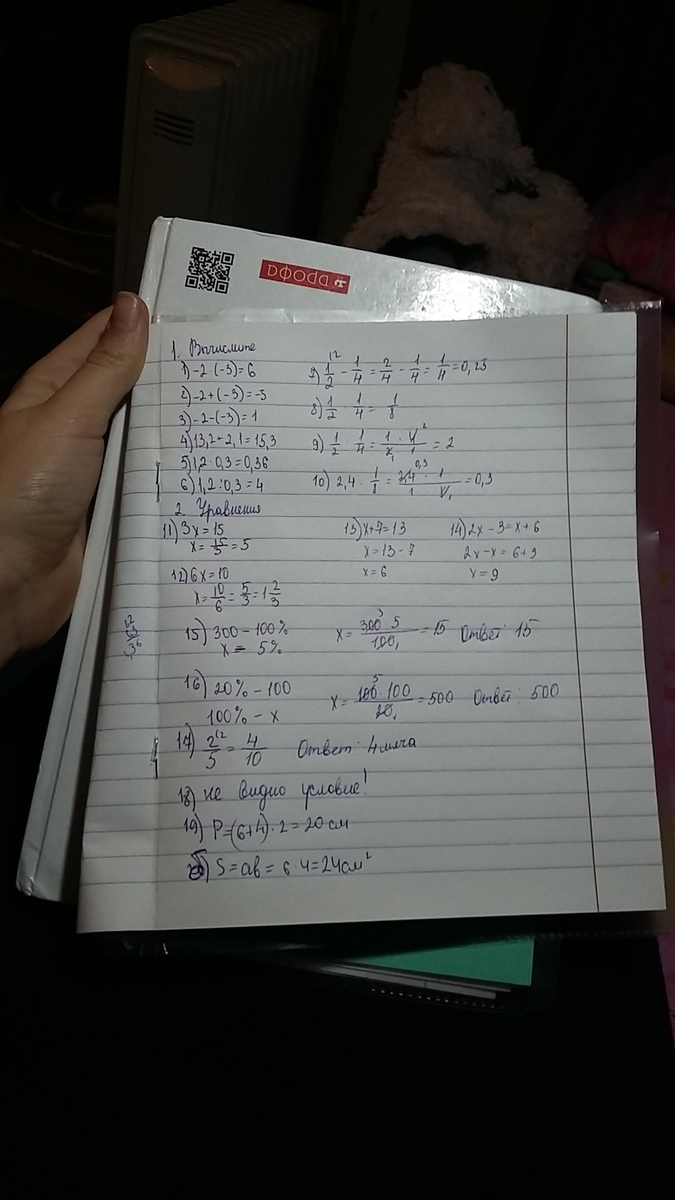 ДРОФА
1. Вычислите
1) -2 (-3) = 6
2) -2 + (-3) = -5
3) -2 - (-3) = 1
4) 13,2 + 2,1 = 15,3
5) 1,2 · 0,3 = 0,36
6) 1,2 : 0,3 = 4
1/2 - 1/4 = 2/4 - 1/4 = 1/4 = 0,25
8) 1/2 1/4 = 1/8
9) 1/2 : 1/4 = 1 · 4 2 / 2 1 · 1 = 2
10) 2,4 · 1/8 = 2,4 0,3 · 1 / 1 · 8 1 = 0,3
2. Уравнения
11) 3x = 15
x = 15/3 = 5
12) 6x = 10
x = 10/6 = 5/3 = 1 2/3
13) x + 7 = 13
x = 13 - 7
x = 6
14) 2x - 3 = x + 6
2x - x = 6 + 3
x = 9
15) 300 - 100%
x - 5%
x = 300 3 · 5 / 100 1 = 15 Ответ: 15
16) 20% - 100
100% - x
x = 100 5 · 100 / 20 1 = 500 Ответ: 500
17) 2/5 = 4/10 Ответ: 4 мяча
18) не видно условие!
19) P = (6+4) · 2 = 20 см
S = ab = 6 · 4 = 24 см²